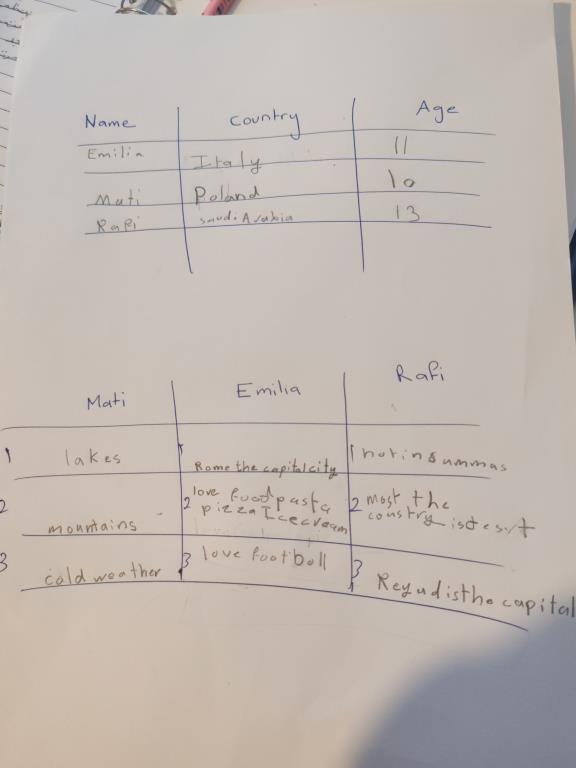 Name country Age
Emilia Italy 11
Mati Poland 10
Rafi saudi Arabia 13
Mati Emilia Rafi
1 lakes 1 Rome the capital city 1 hot in summas
2 mountains 2 love food pasta pizza Icecream 2 most the constry is desrt
3 cold weather 3 love football 3 Reyad is the capital